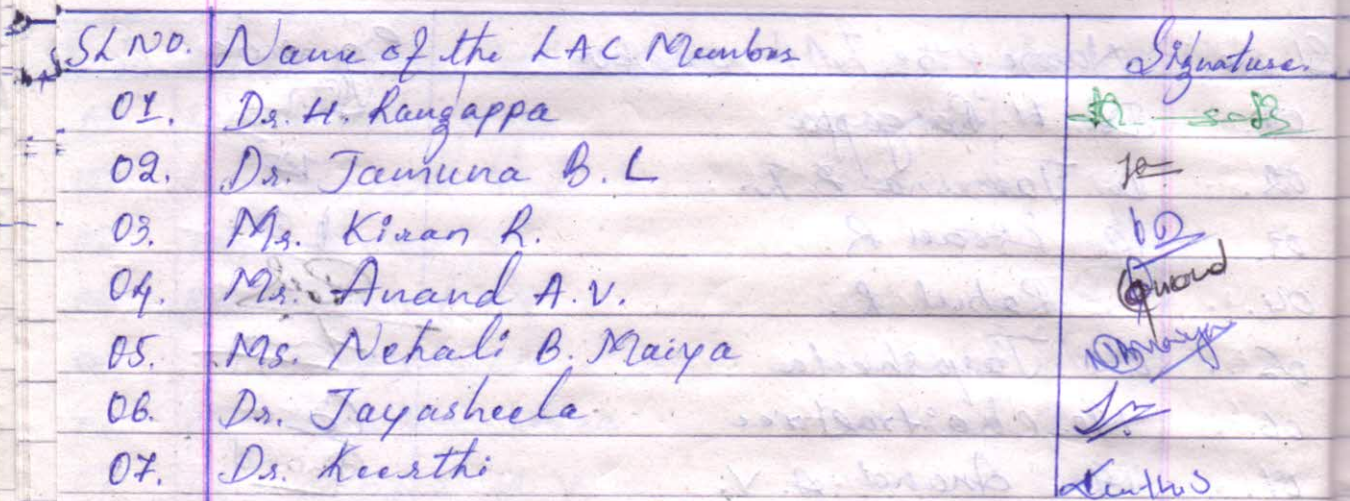 SL NO. Name of the LAC Members Signature
01. Dr. H. Rangappa
02. Dr. Jamuna B. L
03. Mr. Kiran R.
04. Mr. Anand A.V. Anand
05. Ms. Nehali B. Maiya NBMaiya
06. Dr. Jayasheela
07. Dr. Keerthi Keerthi